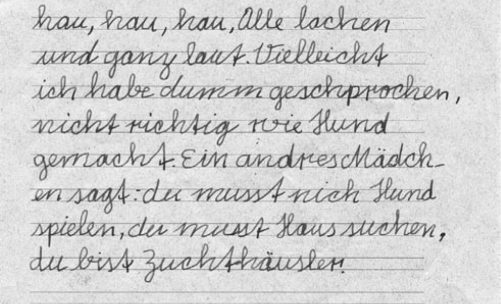 hau, hau, hau, Alle lachen
und ganz laut. Vielleicht
ich habe dumm geschprochen,
nicht richtig wie Hund
gemacht. Ein andres Mädch-
en sagt: du musst nich Hund
spielen, du musst Haus suchen,
du bist Zuchthäusler!